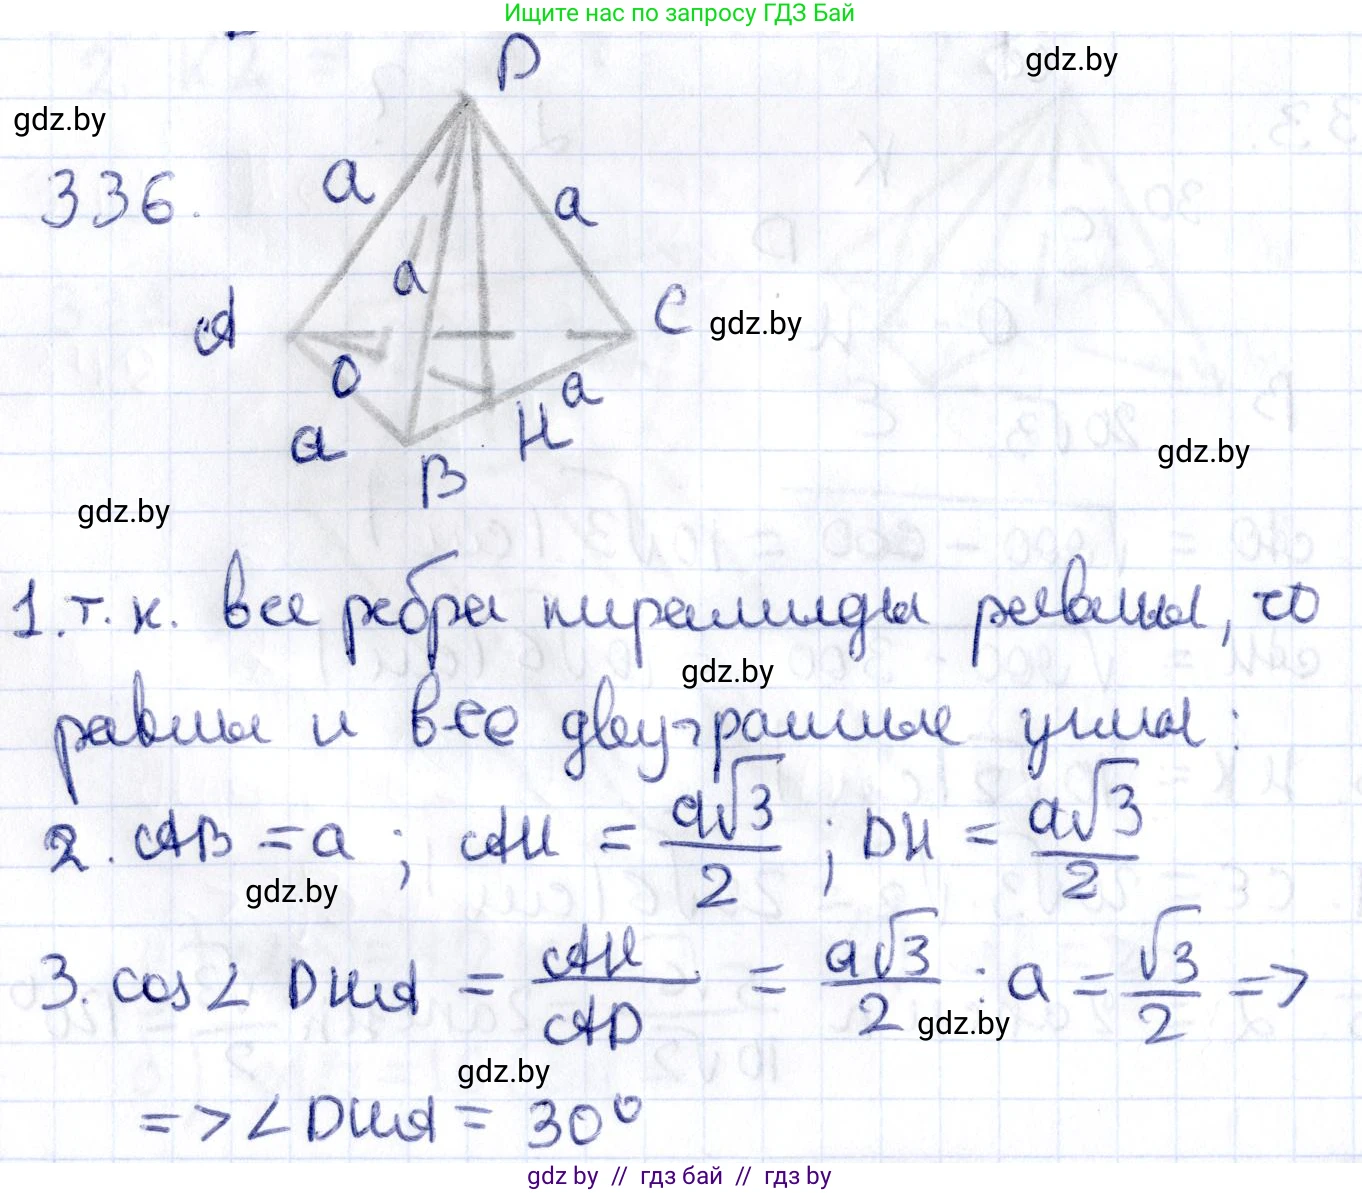 Ищите нас по запросу ГДЗ Бай
D
gdz.by
gdz.by
336.
a
a
a
A
C
gdz.by
O
a
a
H
B
gdz.by
gdz.by
1. т. к. все ребра пирамиды равны, то
gdz.by
равны и все двугранные углы:
2. AB = a ; AH = a√3/2 ; DH = a√3/2
gdz.by
3. cos∠ DHA = AH/AD = a√3/2 : a = √3/2 =>
gdz.by
gdz.by
=> ∠DHA = 30°
gdz by // гдз бай // гдз by